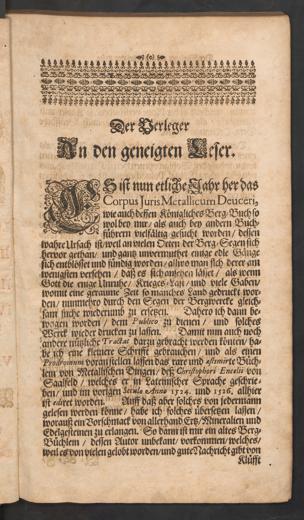 Der Verleger
An den geneigten Leser.
ES ist nun etliche Jahr her das
Corpus Juris Metallicum Deuceri,
wie auch dessen Königliches Berg-Buch so
wol bey mir/ als auch bey andern Buch-
führern vielfältig gesucht worden/ dessen
wahre Ursach ist/ weil an vielen Orten der Berg-Segen sich
hervor gethan/ und gantz unvermuthet einige edle Gänge
sich entblösset und fündig worden/ allwo man sich derer am
wenigsten versehen/ daß es sich ansehen lässet/ als wenn
Gott die einge Unruhe/ Krieges-Last/ und viele Gaben/
womit eine geraume Zeit so manches Land gedruckt wor-
den/ nunmehro durch den Segen der Bergwercke gleich-
sam suche wiederumb zu ersetzen. Dahero ich dann be-
wogen worden/ dem Publico zu dienen/ und solches
Werck wieder drucken zu lassen. Damit nun auch noch
andere nützliche Tractat darzu gebracht werden könten/ ha-
be ich eine kleinere Schrifft gebrauchen/ und als einen
Prodromum voranstellen lassen das rare und æstimirte Büch-
lein von Metallischen Dingen/ deß Christophori Encelii von
Saalfeld/ welches er in Lateinischer Sprache geschrie-
ben/ und im vorigen Seculo Anno 1524. und 1526. allhier
ist ediret worden. Auff daß aber solches von jedermann
gelesen werden könne/ habe ich solches übersetzen lassen/
woraus ein Vorschmack von allerhand Ertz/ Mineralien und
Edelgesteinen zu erlangen. So dann ist mir ein altes Berg-
Büchlein/ dessen Autor unbekant/ vorkommen/ welches/
weil es von vielen gelobt worden/ und gute Nachricht gibt von
Klüfft